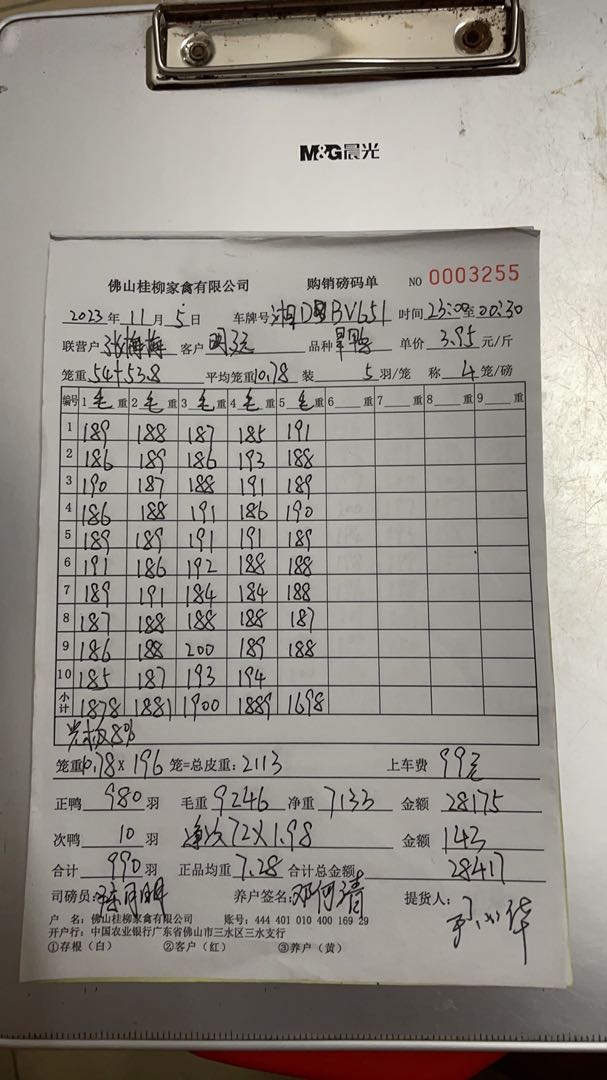 M&G晨光
佛山桂柳家禽有限公司 购销磅码单 NO 0003255
2023年 11月 5日 车牌号 时间 23:00至00:30
联营户 张梅梅 客户 品种 单价 3.95 元/斤
笼重 54+53.8 平均笼重10.78 装 5 羽/笼 称 4 笼/磅
编号 1 毛 重 2 毛 重 3 毛 重 4 毛 重 5 毛 重 6 重 7 重 8 重 9 重
1 189 188 187 185 191
2 186 189 186 193 188
3 190 187 188 191 189
4 186 188 191 186 190
5 189 189 191 191 189
6 191 186 192 188 188
7 189 191 184 184 188
8 187 188 188 188 187
9 186 188 200 189 188
10 185 187 193 194
小计 1878 1881 1900 1889 1698
8%
笼重10.78 X 196 笼=总皮重: 2113 上车费 99元
正鸭 980 羽 毛重 9246 净重 7133 金额 28175
次鸭 10 羽 72X1.98 金额 143
合计 990 羽 正品均重 7.28 合计总金额 28417
司磅员: 养户签名: 邓何清 提货人:
户 名: 佛山桂柳家禽有限公司 账号: 444 401 010 400 169 29
开户行: 中国农业银行广东省佛山市三水区三水支行
①存根(白) ②客户(红) ③养户(黄)